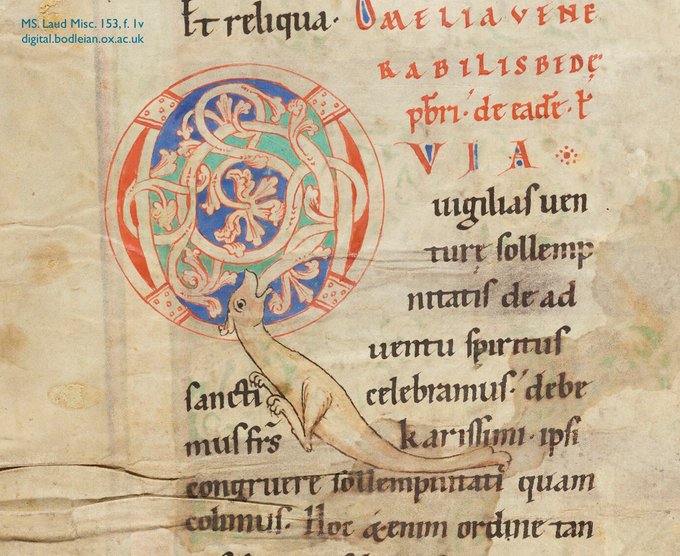 MS. Laud Misc. 153, f. 1v
digital.bodleian.ox.ac.uk
Et reliqua. OMELIA VENE
RABILIS BEDĘ
pbri. de eadē.
QVIA
uigilias uen
turę sollemp
nitatis de ad
uentu spiritus
sancti celebramus. debe
mus frs karissimi. ipsi
congruere sollempnitati quam
colimus. Hoc &enim ordine tan